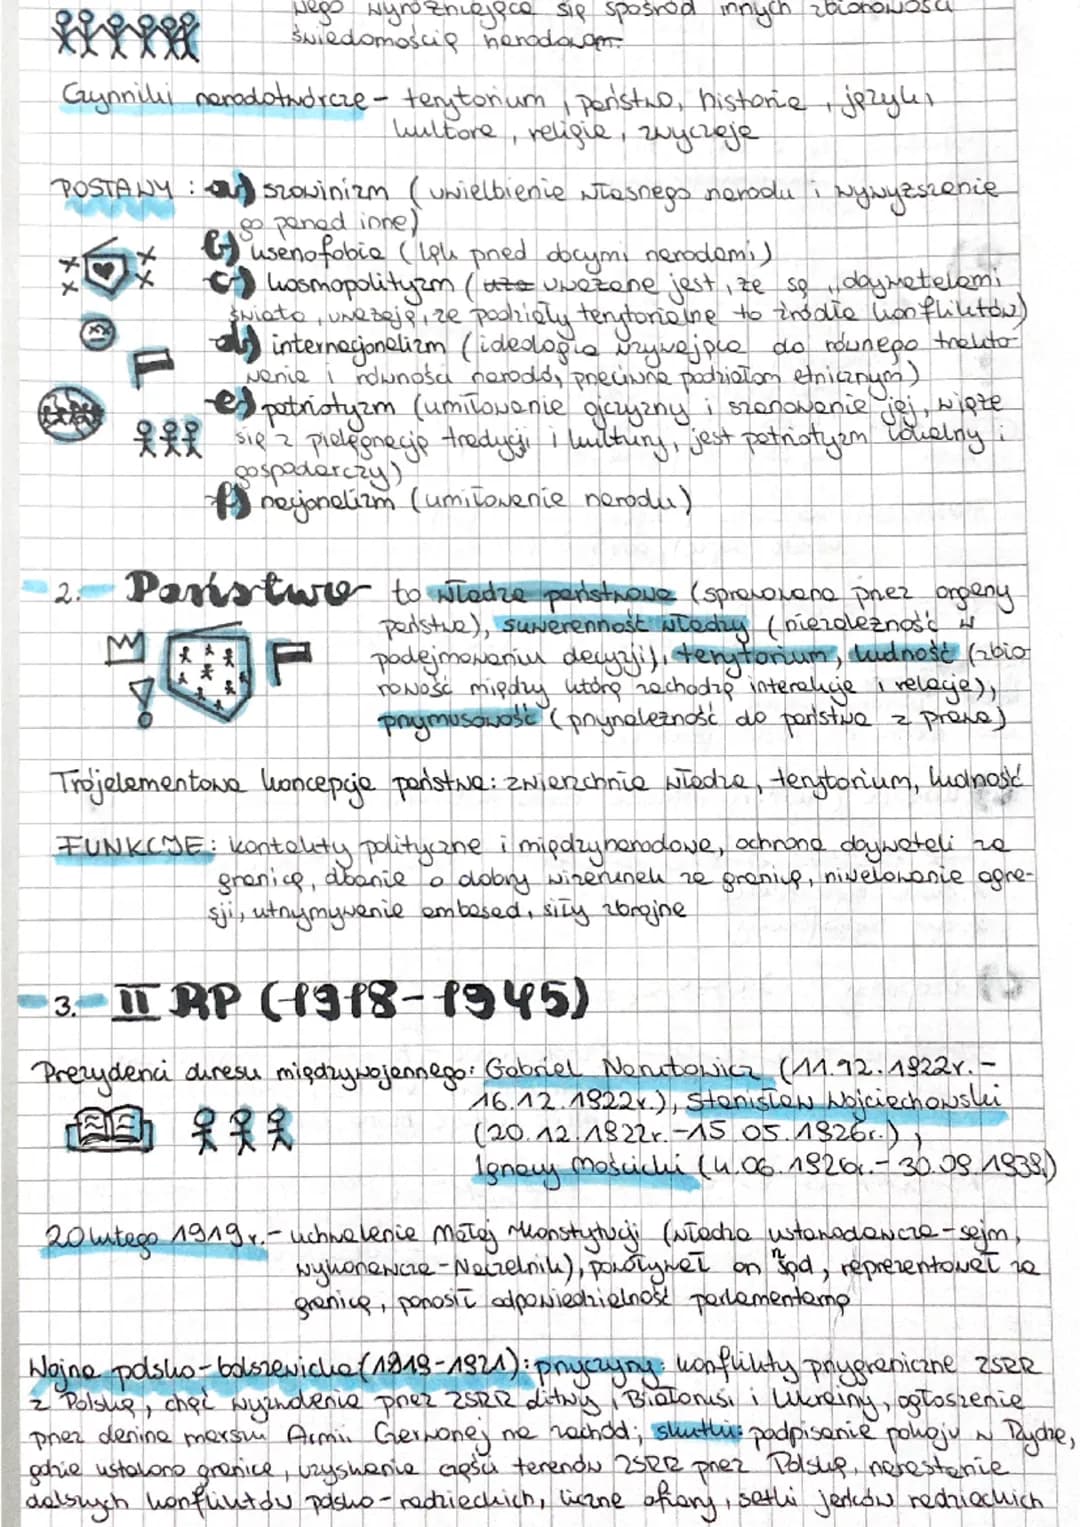 nego wyróżniające się spośród innych zbiorowości
świadomością narodową.
Czynniki narodotwórcze - terytorium, państwo, historia, język,
kultora, religia, zwyczaje
POSTAWY: a) szowinizm (uwielbienie własnego narodu i wywyższanie
go ponad inne)
b) ksenofobia (lęk przed obcymi narodami)
c) kosmopolityzm (uważane jest, że są "obywatelami
świata, uważają, że podziały terytorialne to źródła konfliktów)
d) internacjonalizm (ideologia wzywająca do równego trakto-
wania i równości narodó, przeciwna podziałom etnicznym)
e) patriotyzm (umiłowanie ojczyzny i szanowanie jej, wiąże
się z pielęgnacją tradycji i kultury, jest patriotyzm lokalny i
gospodarczy)
f) nacjonalizm (umiłowanie narodu)
2. Państwo to władza państwowa (sprawowana przez organy
państwa), suwerenność władzy (niezależność w
podejmowaniu decyzji), terytorium, ludność (zbio
rowość między którą zachodzą interakcje i relacje),
przymusowość (przynależność do państwa z prawa)
Trójelementowa koncepcja państwa: zwierzchnia władza, terytorium, ludność
FUNKCJE: kontakty polityczne i międzynarodowe, ochrona obywateli za
granicą, dbanie o dobry wizerunek za granicą, niwelowanie agre-
sji, utrzymywanie ambasad, siły zbrojne
3. II RP (1918-1945)
Prezydenci okresu międzywojennego: Gabriel Narutowicz (11.12.1922r.-
16.12.1922r.), Stanisław Wojciechowski
(20.12.1922r.-15.05.1926r.),
Ignacy Mościcki (4.06.1926r.-30.09.1939.)
20 lutego 1919r.- uchwalenie Małej Konstytucji (władza ustawodawcza - sejm,
wykonawcza - Naczelnik), powoływał on rząd, reprezentował za
granicą, ponosił odpowiedzialność parlamentarną
Wojna polsko-bolszewicka (1919-1921): przyczyny: konflikty przygraniczne ZSRR
z Polską, chęć wyzwolenia przez ZSRR Litwy, Białorusi i Ukrainy, ogłoszenie
przez Lenina marszu Armii Czerwonej na zachód; skutki: podpisanie pokoju w Rydze,
gdzie ustalono granice, uzyskanie części terenów ZSRR przez Polskę, narastanie
dalszych konfliktów polsko-radzieckich, liczne ofiary, setki jeńców radzieckich